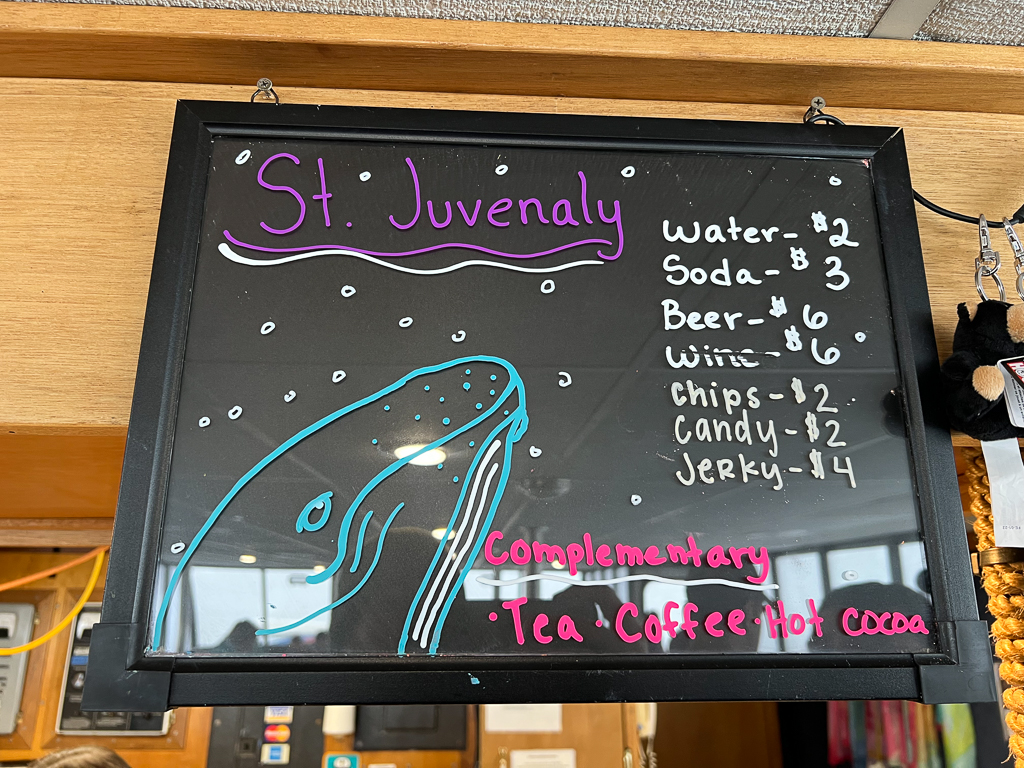 St. Juvenaly
Water- $2
Soda- $3
Beer- $6
Wine- $6
Chips- $2
Candy- $2
Jerky- $4
Complementary
·Tea ·Coffee ·Hot cocoa